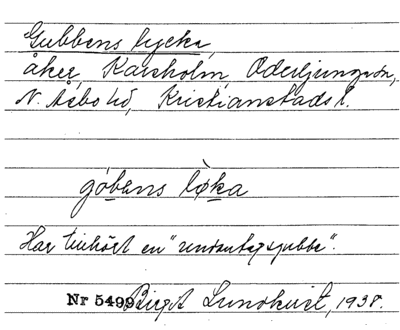 Gubbens lycka,
åker, Karsholm, Oderljunga sn,
N. Åsbo hd, Kristianstads l.
góbens lø̀ka
Har tillhört en "undantagsgubbe".
Nr 5499. Birgit Lundkvist, 1938.